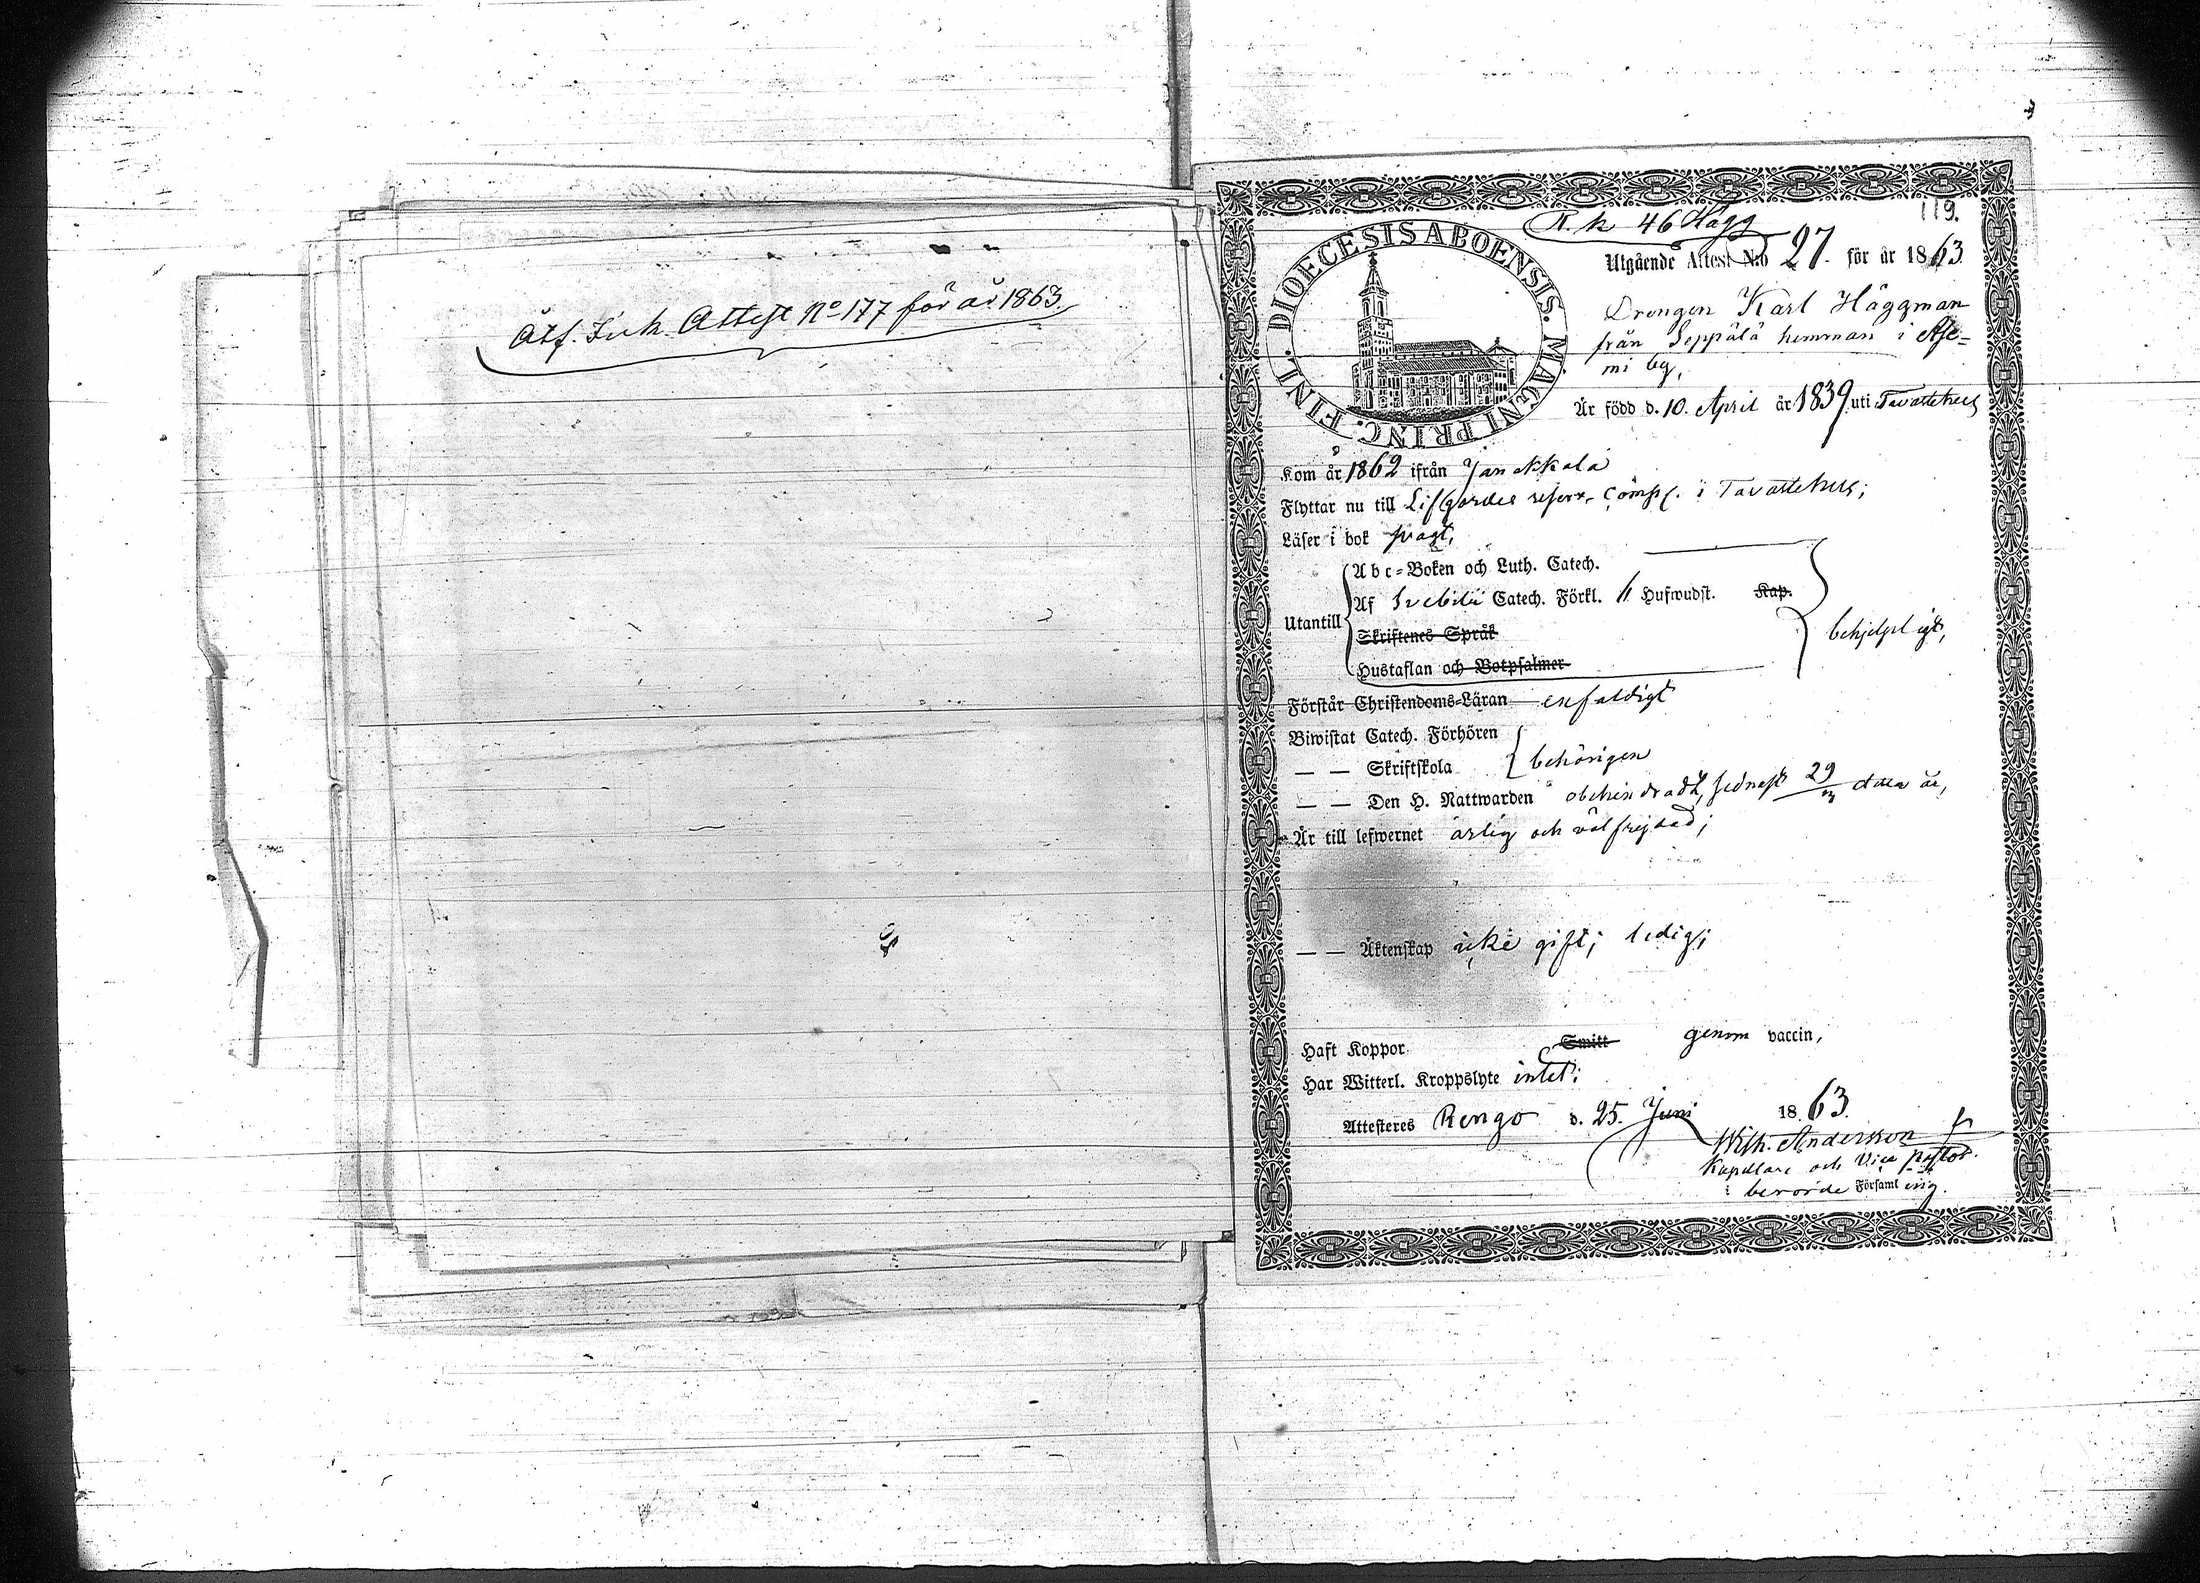 Attest No 177 för år 1863.
119.
R. k 46 Hägg
DIOECESIS ABOENSIS. MAGNI PRINC. FINL.
Utgående Attest N:o 27. för år 1863.
Drengen Karl Häggman
från Seppälä hemman i Ase=
mi by,
Är född d. 10. April år 1839 uti Tavastehus
Kom år 1862 ifrån Janakkala
Flyttar nu till Lifgardes reserv Comp. i Tavastehus;
Läser i bok svagt,
Abc=Boken och Luth. Catech.
Utantill Af Svebilii Catech. Förkl. 6 Hufwudst. Kap.
behjelpligt,
Skriftenes Språk
Hustaflan och Botpsalmer
Förstår Christendoms=Läran enfaldigt
Biwistat Catech. Förhören
— — Skriftskola behörigen
— — Den H. Nattwarden obehindradt, sednast 29/3 detta år,
Är till lefwernet ärlig och välfrejdad;
— — Äktenskap icke gift; ledig;
Haft Koppor Smitt genom vaccin,
Har Witterl. Kroppslyte intet;
Attesteres Rengo d. 25. Juni 1863.
Wilh. Andersson
Kapellan och Vice Pastor
i berörde Församling.